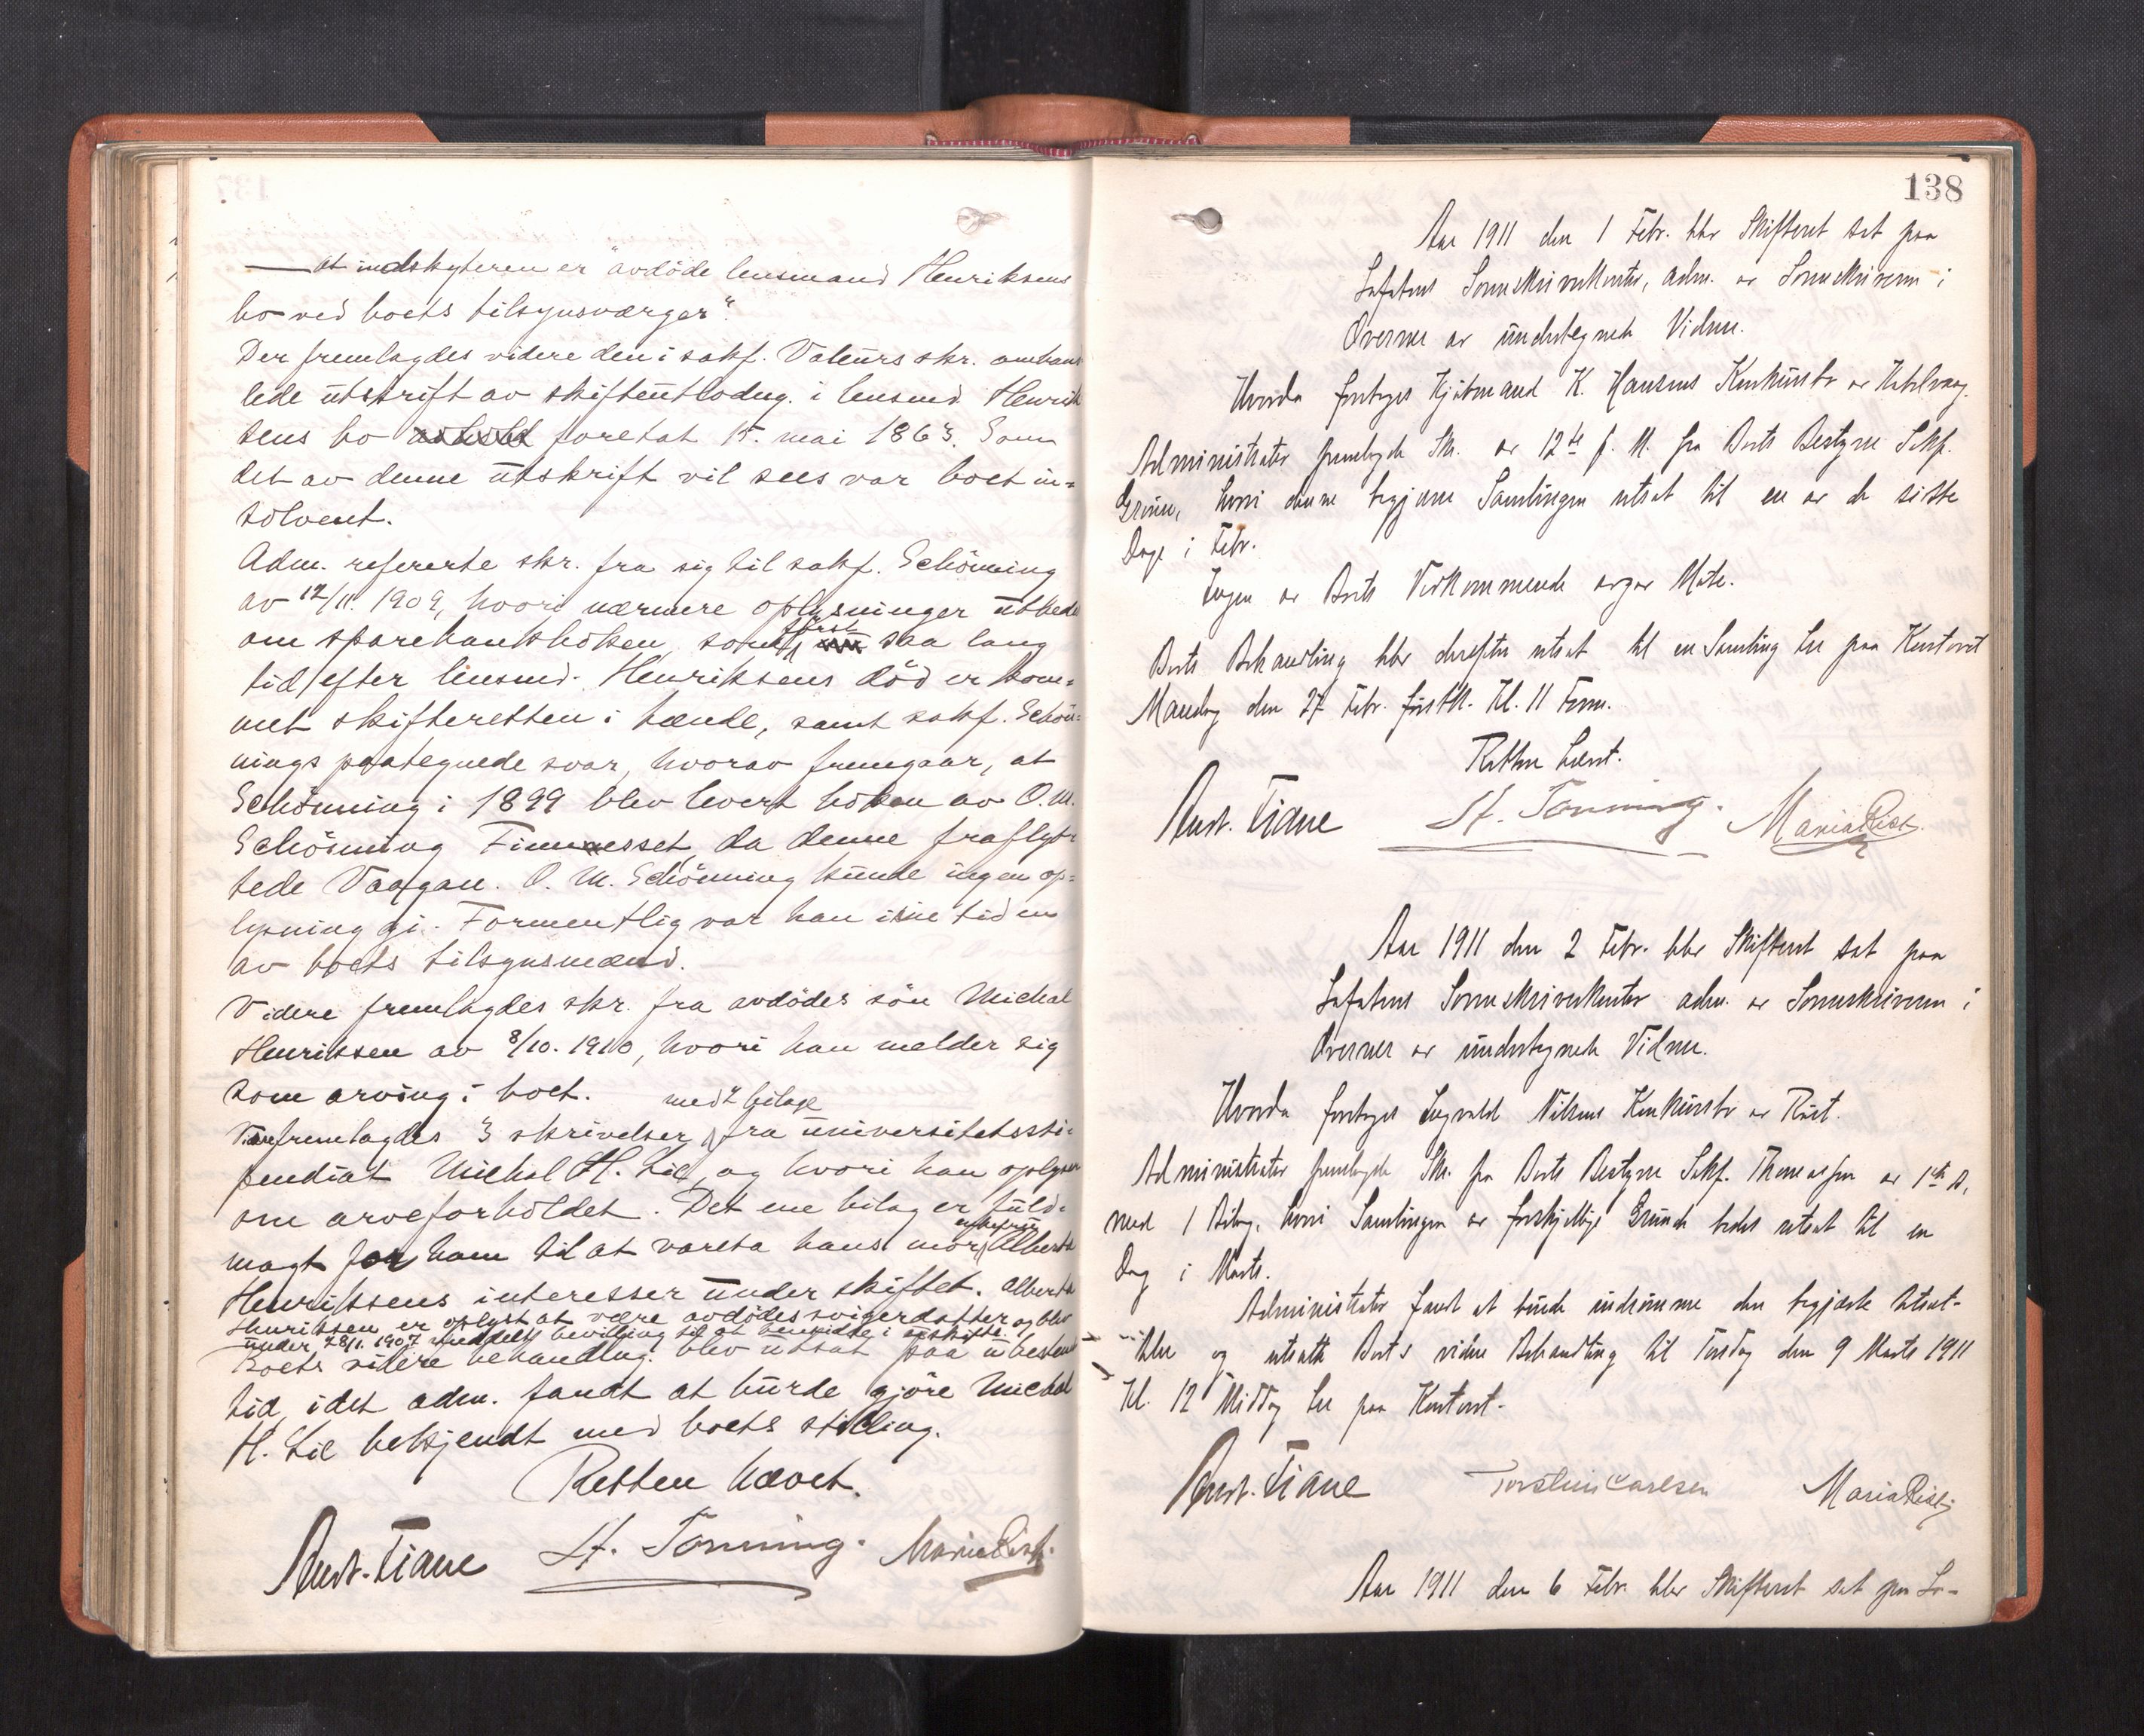 at indskyteren er "avdöde lensmand Henriksens
bo ved boets tilsynsværger".
Der fremlagdes videre den i sakf. Valeurs skr. omhand
lede utskrift av skifteutlodng. i lensmd. Henrik
sens bo foretat 15. mai 1863. Som
det av denne utskrift vil sees var boet in-
solvent.
Adm. refererte skr. fra sig til sakf. Schönning
av 12/11. 1909, hvori nærmere oplysninger utbedes
om sparebankboken, som först saa lang
tid efter lensmd. Henriksens död er kom-
met skifteretten i hænde, samt sakf. Schön-
nings paategnede svar, hvorav fremgaar, at
Schönning i 1899 blev levert boken av O. M.
Schönning Finnesset, da denne fraflyt-
tede Vaagan. O. M. Schönning kunde ingen op-
lysning gi. Formentlig var han i sin tid en
av boets tilsynsmænd.
Videre fremlagdes skr. fra avdödes sön Michal
Henriksen av 8/10. 1910, hvori han melder sig
som arving i boet.
med 2 bilage
fremlagdes 3 skrivelser fra universitetssti-
pendiat Michal H. Lie, og hvori han oplyser
om arveforholdet. Det ene bilag er fuld-
enkefru
magt for ham til at vareta hans mor Alberta
Henriksens interesser under skiftet. Alberta
Henriksen er oplyst at være avdödes svigerdatter og blev
under 28/1. 1907 meddelt bevilling til at hensidde i uskifte.
Boets videre behandling. blev utsat paa ubestemt
tid, idet adm. fandt at burde gjöre Michal
H. Lie bekjendt med boets stilling.
Retten hævet.
Andr. Fiane St. Tonning. Maria Rist.
138
Aar 1911 den 1 Febr. blev Skifteret sat paa
Lofotens Sorenskriverkontor, adm. av Sorenskriveren i
Overvær av undertegnede Vidner.
Hvorda foretoges Kjöbmand K. Hansens Konkursbo av
Administrator fremlagde Skr. av 12te f. M. fra Boets Bestyrer Sakf.
hvori denne begjærer Samlingen utsat til en av de sidste
Dage i Febr.
Ingen av Boets Vedkommende avgav Möte.
Boets Behandling blev derefter utsat til en Samling her paa Kontoret
Mandag den 27 Febr. förstk. Kl. 11 Form.
Retten hævet.
Andr. Fiane St. Tonning. Maria Rist.
Aar 1911 den 2 Febr. blev Skifteret sat paa
Lofotens Sorenskriverkontor adm. av Sorenskriveren i
Overvær av undertegnede Vidner.
Hvorda foretoges Ingvald Nilsens Konkursbo av Röst.
Administrator fremlagde Skr. fra Boets Bestyrer Sakf. Thomassen av 1ste ds.
med 1 Bilag, hvori Samlingen av forskjellige Grunde bedes utsat til en
Dag i Marts.
Administrator fandt at burde indrömme den begjærte Utsæt-
telse og utsatte Boets videre Behandling til Torsdag den 9 Marts 1911
Kl. 12 Middag her paa Kontoret.
Andr. Fiane Torstein Carlsen Maria Rist
Aar 1911 den 6 Febr. blev Skifteret sat paa Lo-